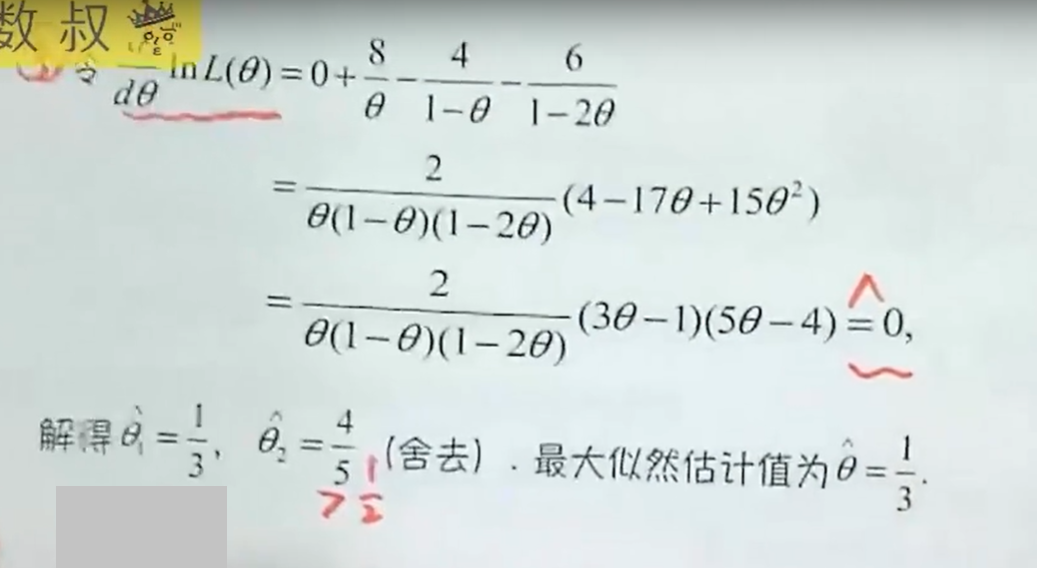 数叔
令 d/dθ ln L(θ) = 0 + 8/θ − 4/(1−θ) − 6/(1−2θ)
= 2/(θ(1−θ)(1−2θ)) (4−17θ+15θ²)
= 2/(θ(1−θ)(1−2θ)) (3θ−1)(5θ−4) = 0,
解得 θ̂₁ = 1/3, θ̂₂ = 4/5 (舍去). 最大似然估计值为 θ̂ = 1/3.
> 1/2